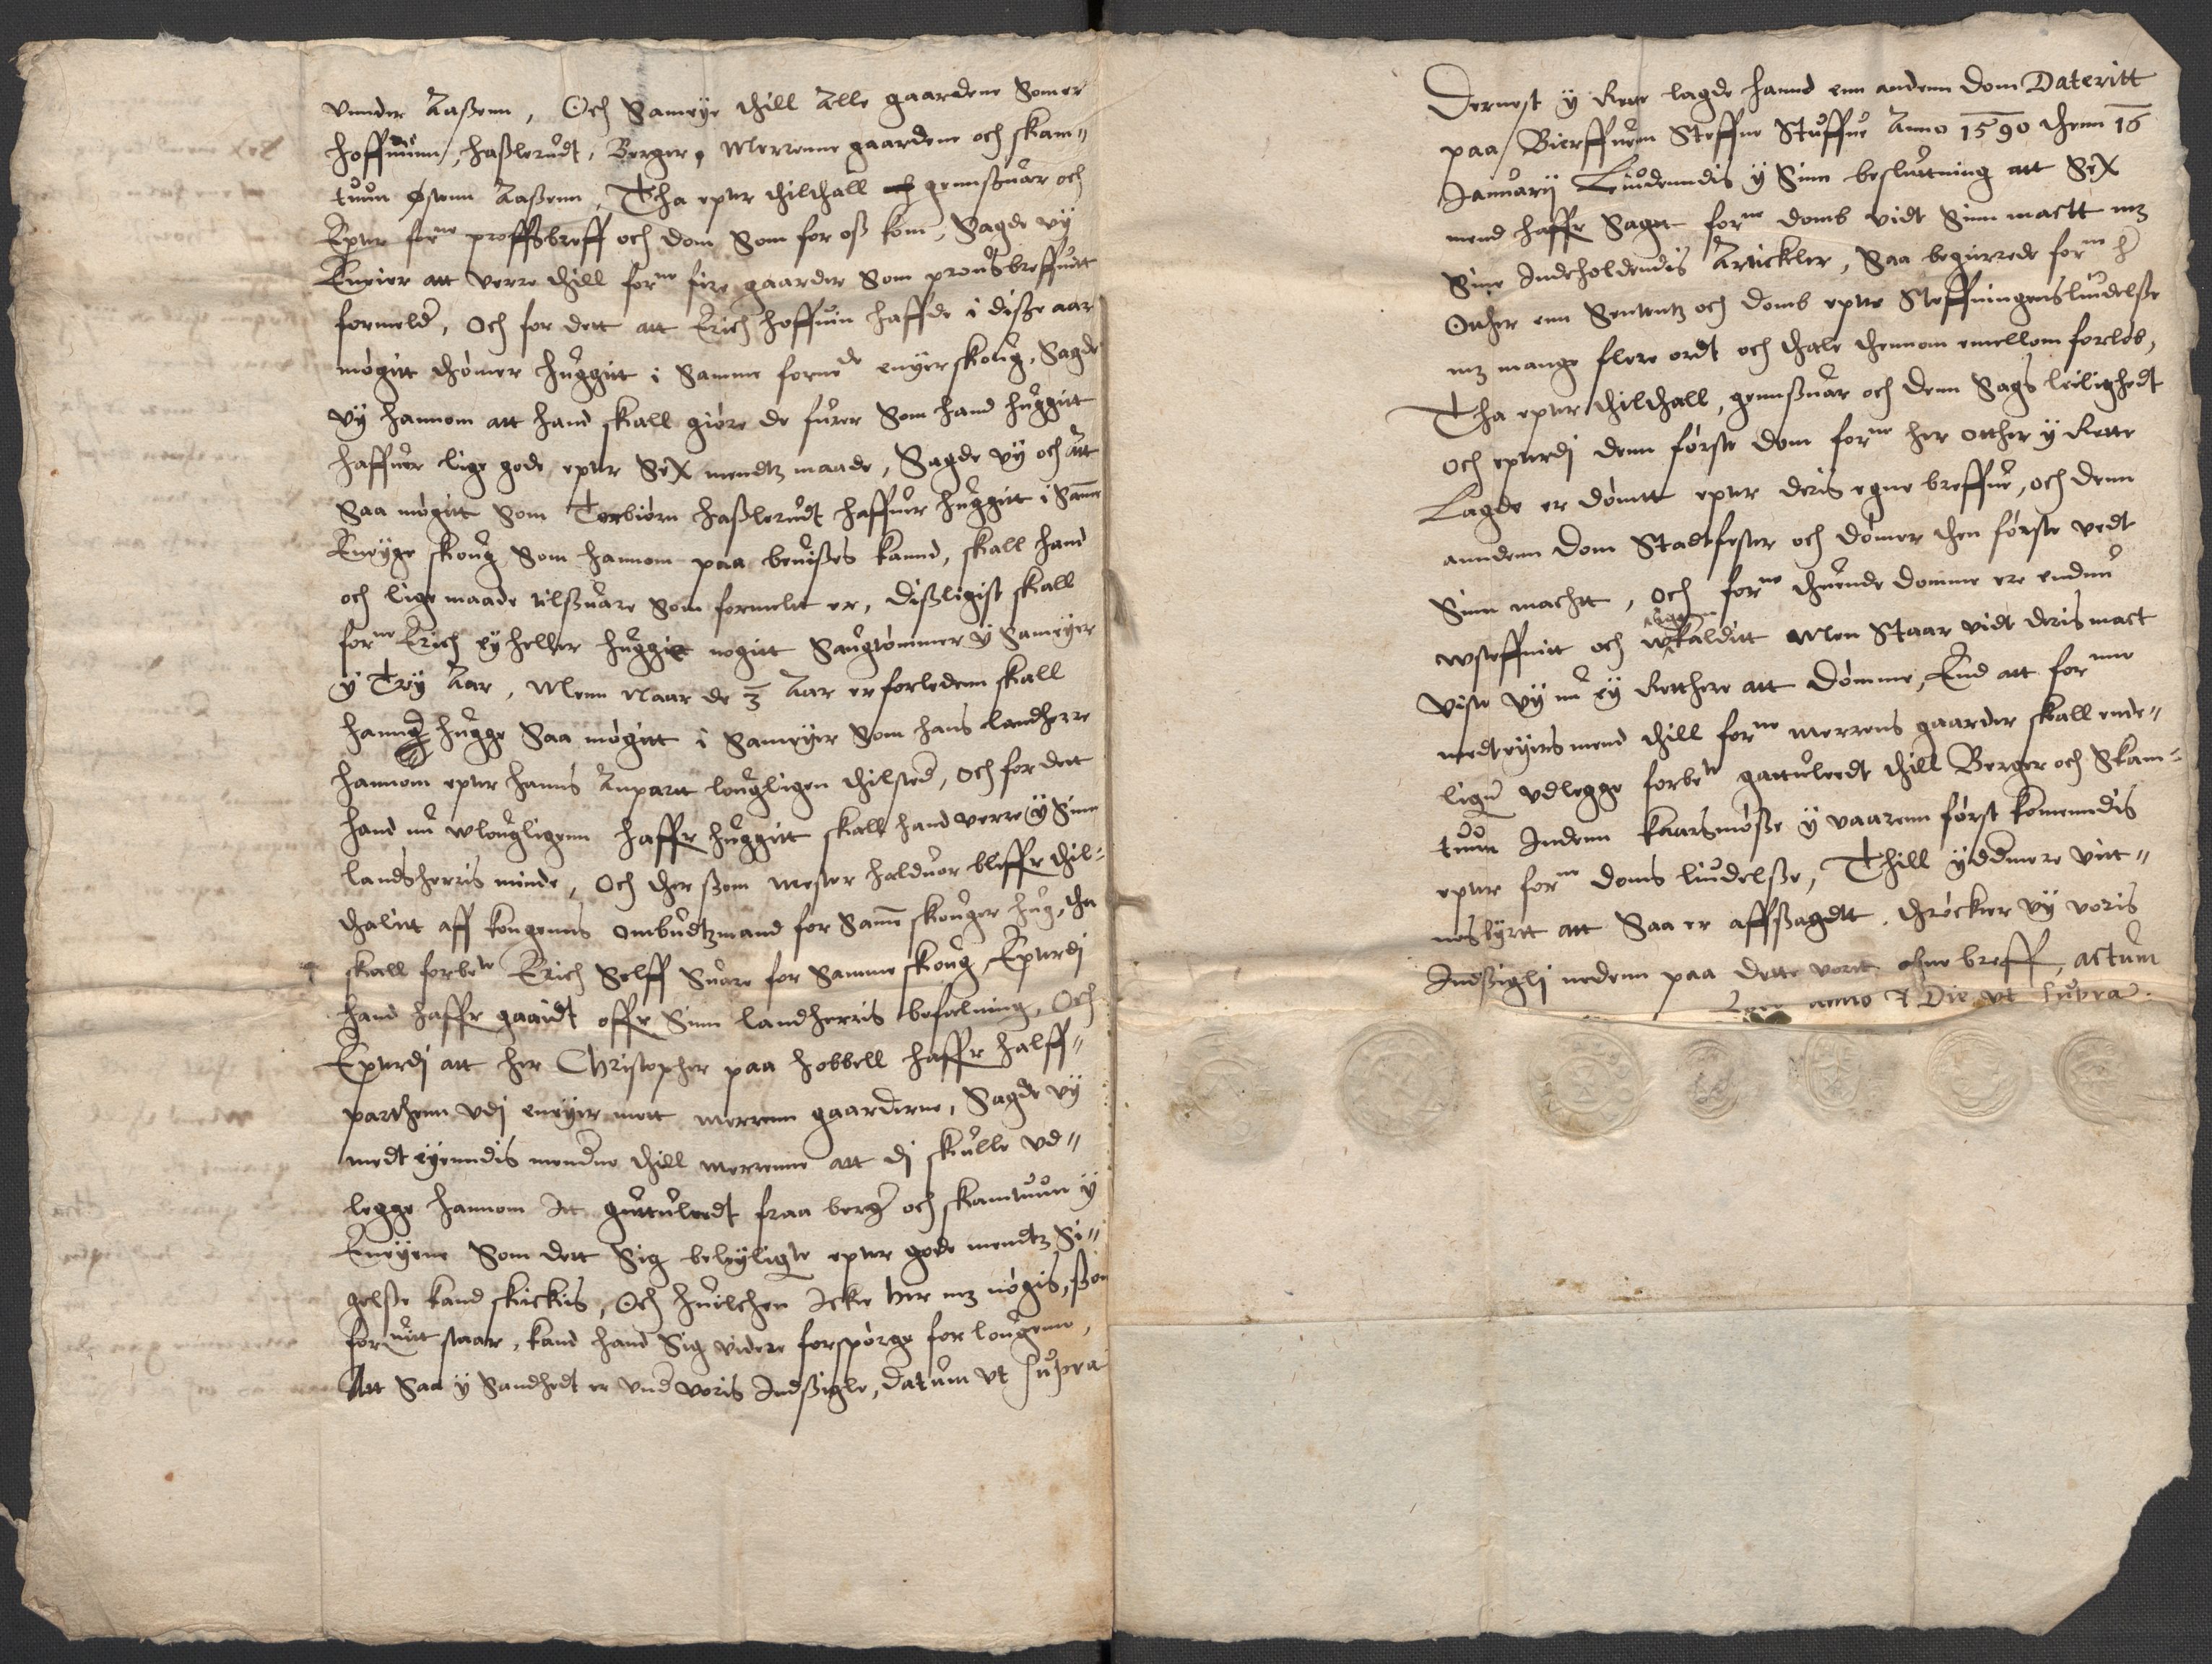 vnnder Aaßenn, Och Sameÿe thill Alle gaardene Som er
hoffuinn, haßlerudt, Berger, Merrenne gaardene och skam-
tuun østenn Aaßenn, Tha epter thilthall gennsuar och
Epter forne proffsbreff och dom Som for oß kom, Sagde vÿ
Eneier att verre thill forne fire gaarder Som prouffsbreffuitt
formelder, Och for dett att Erich hoffuin haffde i diße aar
møgitt thømer huggitt i Samme fornede eneÿer skoug, Sagde
vÿ hannom att hand skall giøre de furer Som hand huggitt
haffuer lige gode epter Sex mendtz maade, Sagde vÿ och Att
Saa møgitt Som Torbiørn haßlerudt haffuer huggitt i Samme
Eneÿge skoug Som hannom paa beuißes kannd, skall hand
och lige maade tilsuare Som formelt er, dißligist skall
forne Erich eÿ heller hugge nogitt Saugtømmer ÿ Sameÿer
ÿ Trÿ Aar, Menn Naar de 3 Aar er forledenn skall
hannd hugge Saa møgitt i Sameÿer Som hans landherre
hannom epter hanns Anpartt lougligen thilsteder, Och for dett
hand nu wlougligenn haffr huggitt skall hand verre ÿ Sinn
landsherris minde, Och ther ßom Mester halduor bleffr thil-
thalitt aff kongenns ombudtzmand for Samme skouger hug, tha
skall forbete Erich Selff Suare for Samme skoug, Epterdj
hand haffr gaaidt offr Sinn landherris befalning, Och
Epterdj att her Christopher paa hobbell haffr halff-
parthenn vdj eneÿer mett Merrenn gaarderne, Sagde vÿ
medt eÿenndis mendene thill Merrenne att dj skulle vd-
legge hannom Itt guttuleedt fraa berger och skamtuun ÿ
Eneÿene Som dett Sig beleÿligte epter gode mendtz Si-
gelße kand skickis, Och huilchen Icke her mz nøgis, ßom
foruitt staar, kand hand Sig videre forspørge for lougenn,
Att Saa ÿ Sandhedt er vnder voris Indßigle, datum vt supra
Dernest ÿ Rette lagde hannd enn andenn dom Dateritt
paa Bierffuem Steffne Stuffue Anno 1590 thenn 16
Januarij Liudenndis ÿ Sinn besluttning att Sex
mend haffr Sagtt forne domb vidt Sinn mactt mz
Sine Indeholdendis Artickler, Saa begierrede forne her
Otther enn Sententz och domb epter Steffningens liudelße
mz mange flere ordt och thale thennom emellom forløb,
Tha epter thilthall, gennsuar och denn Sags leilighedt
Och epterdj denn første dom forne her Otther ÿ Rette
Lagde er dømtt epter deris egne breffue, och denn
anndenn Dom Stadtfester och dømer then første vedt
Sinn machtt, Och forne thuende domme ere endnu
wsteffnitt och wkalditt Men Staar vidt deris mact
viste vÿ nu eÿ Retthere att Dømme, End att forne
medteÿers mend thill forne Merrens gaarder skall ende-
ligen vdlegge forbete gattuleedt thill Berger och Skam-
tuun Indenn kaarsmøße ÿ vaarenn først komenndis
epter forne doms liudelße, Thill ÿdermere vitt-
nesbÿrtt att Saa er affßagdtt, thrøcker vÿ voris
Indßigli nedenn paa dette vortt obne breff, Actum
anno & Die vt supra.